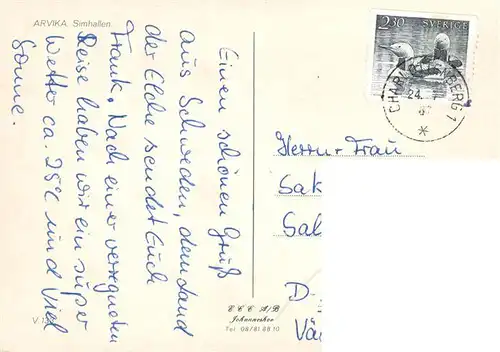 ARVIKA. Simhallen
Einen schönen Gruß
aus Schweden, dem Land
der Elche sendet Euch
Frank. Nach einer verregneten
Reise haben wir ein super
Wetter ca. 25°C und viel
Sonne.
2.30 SVERIGE
CHAR BERG 1
24.
Herrn + Frau
Sak
Sal
D-
E C C A/B
Johanneshov
Tel 08/81 88 10
V